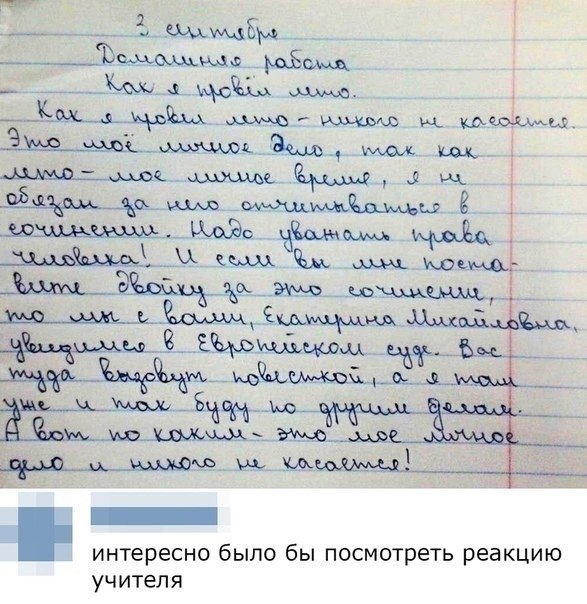 3 сентября
Домашняя работа
Как я провёл лето.
Как я провел лето – никого не касается.
Это моё личное дело, так как
лето – мое личное время, я не
обязан за него отчитываться в
сочинении. Надо уважать права
человека! И если вы мне поста-
вите двойку за это сочинение,
то мы с вами, Екатерина Михайловна,
увидимся в Европейском суде. Вас
туда вызовут повесткой, а я там
уже и так буду по другим делам.
А вот по каким – это мое личное
дело и никого не касается!
интересно было бы посмотреть реакцию
учителя